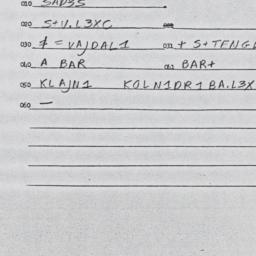 010 SAD35
020 S+U.L3XC
030 $ = VAJDAL1 031 + S+TFNGL
040 A BAR 042 BAR+
050 KLAJN1 KOLN1DR1 BA.L3X
060 —